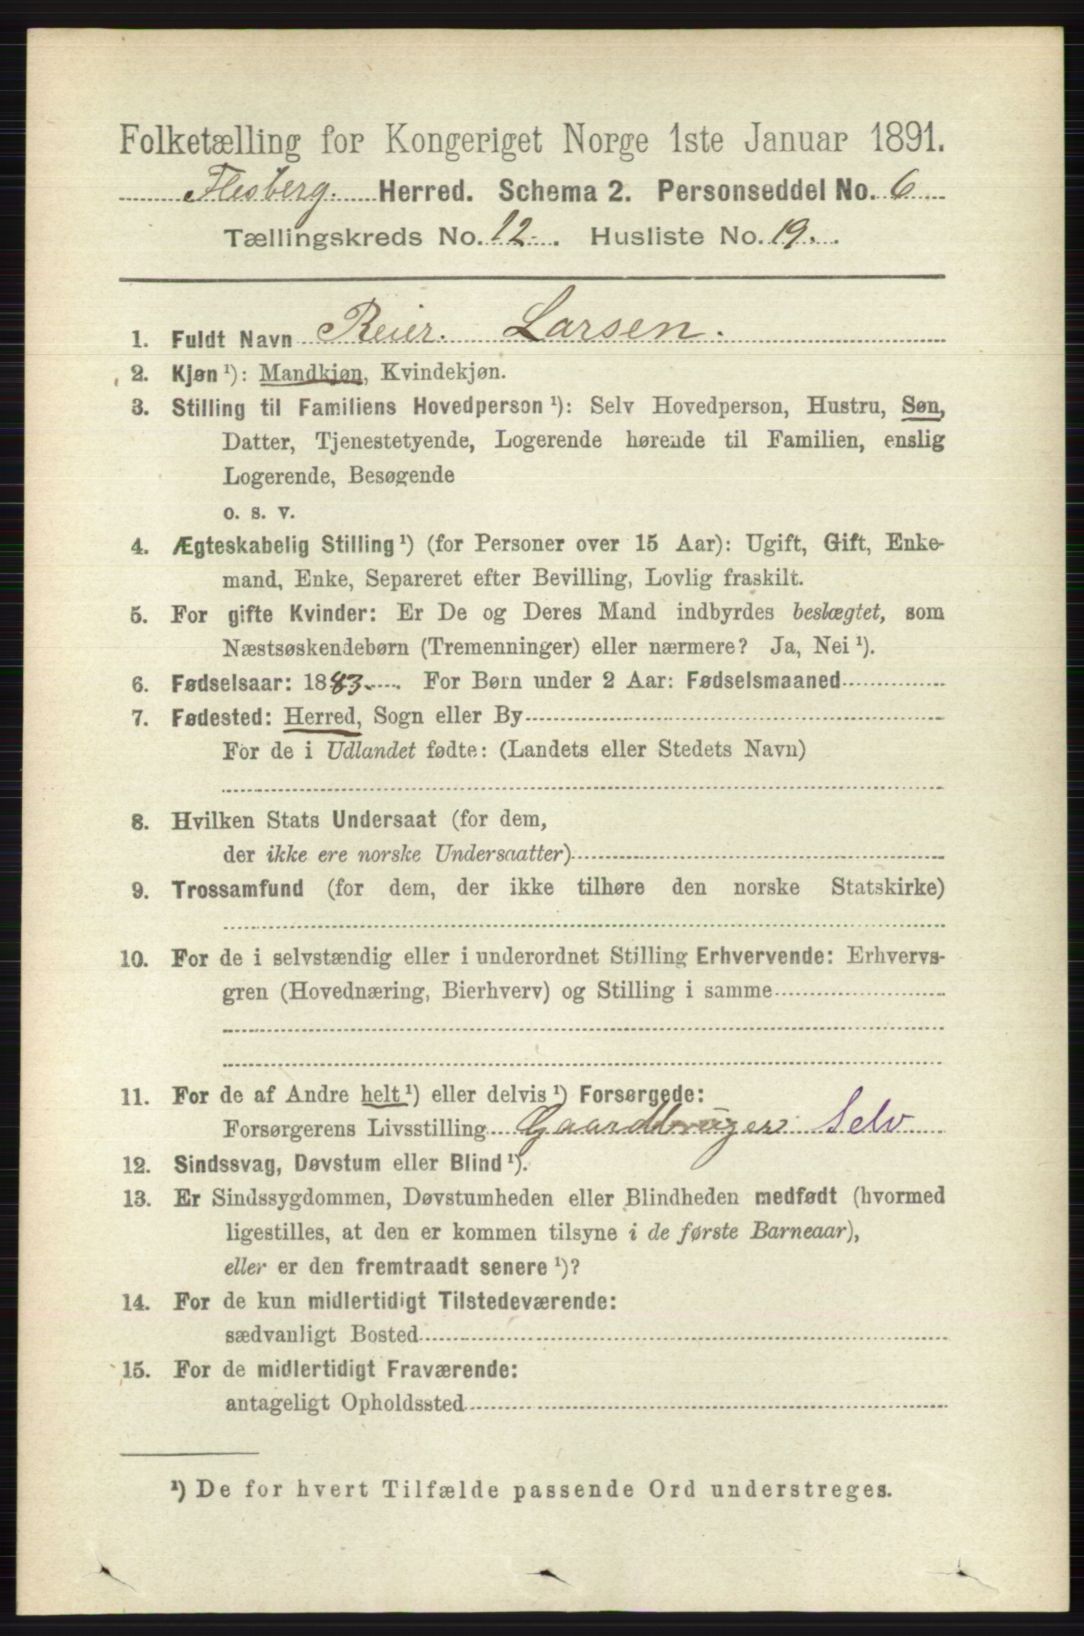 Folketælling for Kongeriget Norge 1ste Januar 1891.
Flesberg. Herred. Schema 2. Personseddel No. 6
Tællingskreds No. 12. Husliste No. 19.
1. Fuldt Navn Reier. Larsen.
2. Kjøn ¹): Mandkjøn, Kvindekjøn.
3. Stilling til Familiens Hovedperson ¹): Selv Hovedperson, Hustru, Søn,
Datter, Tjenestetyende, Logerende hørende til Familien, enslig
Logerende, Besøgende
o. s. v.
4. Ægteskabelig Stilling ¹) (for Personer over 15 Aar): Ugift, Gift, Enke-
mand, Enke, Separeret efter Bevilling, Lovlig fraskilt.
5. For gifte Kvinder: Er De og Deres Mand indbyrdes beslægtet, som
Næstsøskendebørn (Tremenninger) eller nærmere? Ja, Nei ¹).
6. Fødselsaar: 1883. For Børn under 2 Aar: Fødselsmaaned
7. Fødested: Herred, Sogn eller By
For de i Udlandet fødte: (Landets eller Stedets Navn)
8. Hvilken Stats Undersaat (for dem,
der ikke ere norske Undersaatter)
9. Trossamfund (for dem, der ikke tilhøre den norske Statskirke)
10. For de i selvstændig eller i underordnet Stilling Erhvervende: Erhvervs-
gren (Hovednæring, Bierhverv) og Stilling i samme
11. For de af Andre helt ¹) eller delvis ¹) Forsørgede:
Forsørgerens Livsstilling Gaardbruger Selv
12. Sindssvag, Døvstum eller Blind ¹).
13. Er Sindssygdommen, Døvstumheden eller Blindheden medfødt (hvormed
ligestilles, at den er kommen tilsyne i de første Barneaar),
eller er den fremtraadt senere ¹)?
14. For de kun midlertidigt Tilstedeværende:
sædvanligt Bosted
15. For de midlertidigt Fraværende:
antageligt Opholdssted
¹) De for hvert Tilfælde passende Ord understreges.